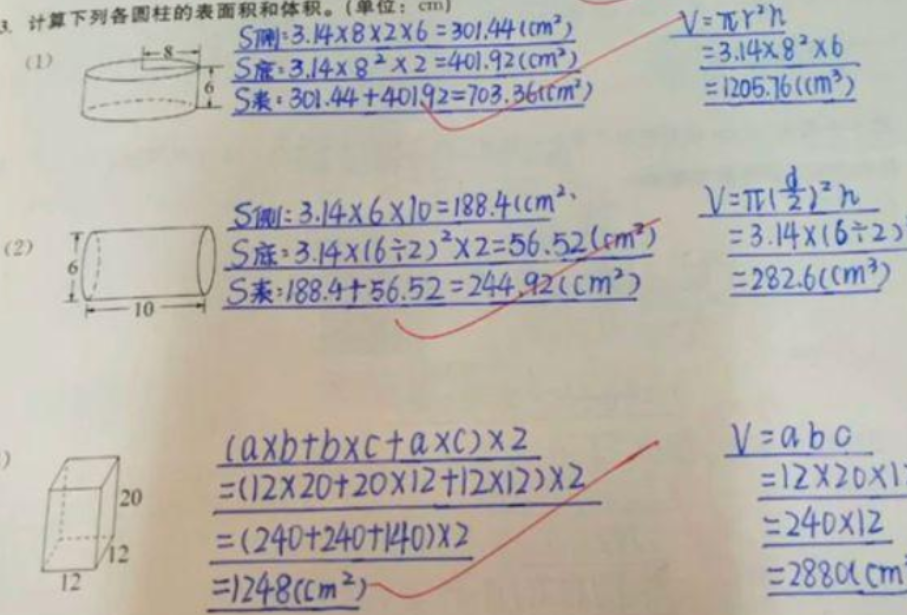 3. 计算下列各圆柱的表面积和体积。(单位：cm)
(1)
8
6
S侧:3.14×8×2×6=301.44(cm²)
S底:3.14×8²×2=401.92(cm²)
S表:301.44+401.92=703.36(cm²)
V=πr²h
=3.14×8²×6
=1205.76(cm³)
(2)
6
10
S侧:3.14×6×10=188.4(cm²
S底:3.14×(6÷2)²×2=56.52(cm²)
S表:188.4+56.52=244.92(cm²)
V=π(d/2)²h
=3.14×(6÷2)
=282.6(cm³)
)
20
12
12
(a×b+b×c+a×c)×2
=(12×20+20×12+12×12)×2
=(240+240+140)×2
=1248(cm²)
V=abc
=12×20×1
=240×12
=2880(cm